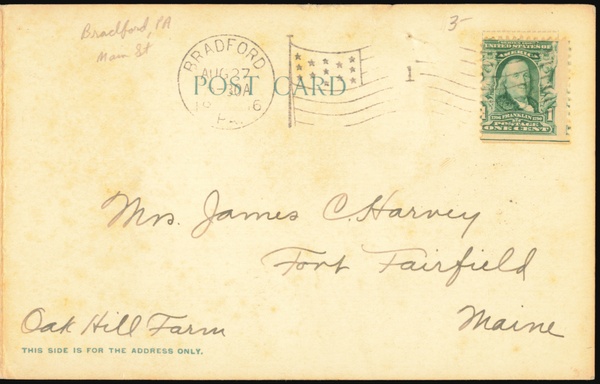 Bradford, PA
Main St
3-
BRADFORD
AUG 27
PA.
1
POST CARD
UNITED STATES OF
AMERICA
FRANKLIN
1 POSTAGE 1
ONE CENT
Mrs. James C. Harvey
Fort Fairfield
Maine
Oak Hill Farm
THIS SIDE IS FOR THE ADDRESS ONLY.